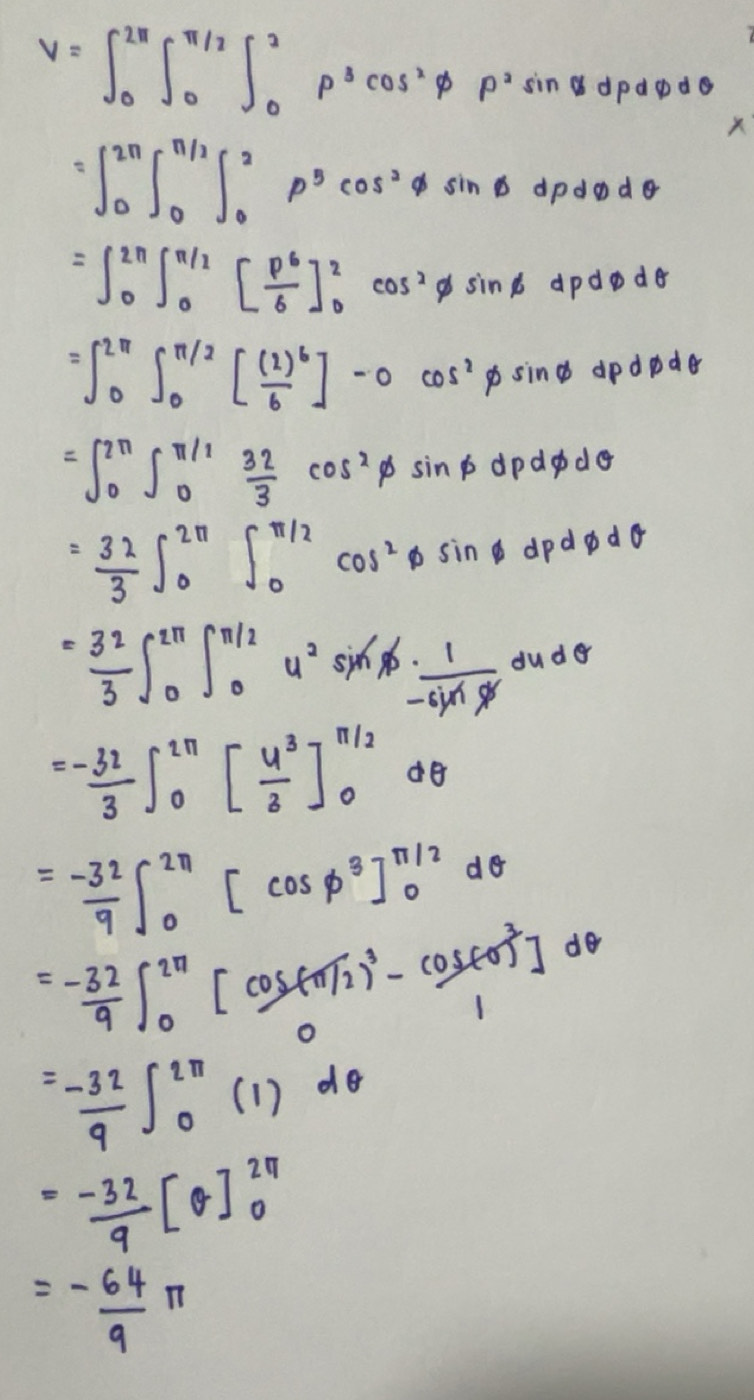 V = ∫₀^2π ∫₀^π/2 ∫₀^2 ρ³ cos² φ ρ² sin φ dρdφdθ
= ∫₀^2π ∫₀^π/2 ∫₀^2 ρ⁵ cos² φ sin φ dρdφdθ
= ∫₀^2π ∫₀^π/2 [ρ⁶/6]₀^2 cos² φ sin φ dρdφdθ
= ∫₀^2π ∫₀^π/2 [(2)⁶/6] - 0 cos² φ sin φ dρdφdθ
= ∫₀^2π ∫₀^π/2 32/3 cos² φ sin φ dρdφdθ
= 32/3 ∫₀^2π ∫₀^π/2 cos² φ sin φ dρdφdθ
= 32/3 ∫₀^2π ∫₀^π/2 u² sin φ · 1/-sin φ du dθ
= -32/3 ∫₀^2π [u³/3]₀^π/2 dθ
= -32/9 ∫₀^2π [cos φ³]₀^π/2 dθ
= -32/9 ∫₀^2π [cos(π/2)³ - cos(0)³] dθ
0 1
= -32/9 ∫₀^2π (1) dθ
= -32/9 [θ]₀^2π
= -64/9 π